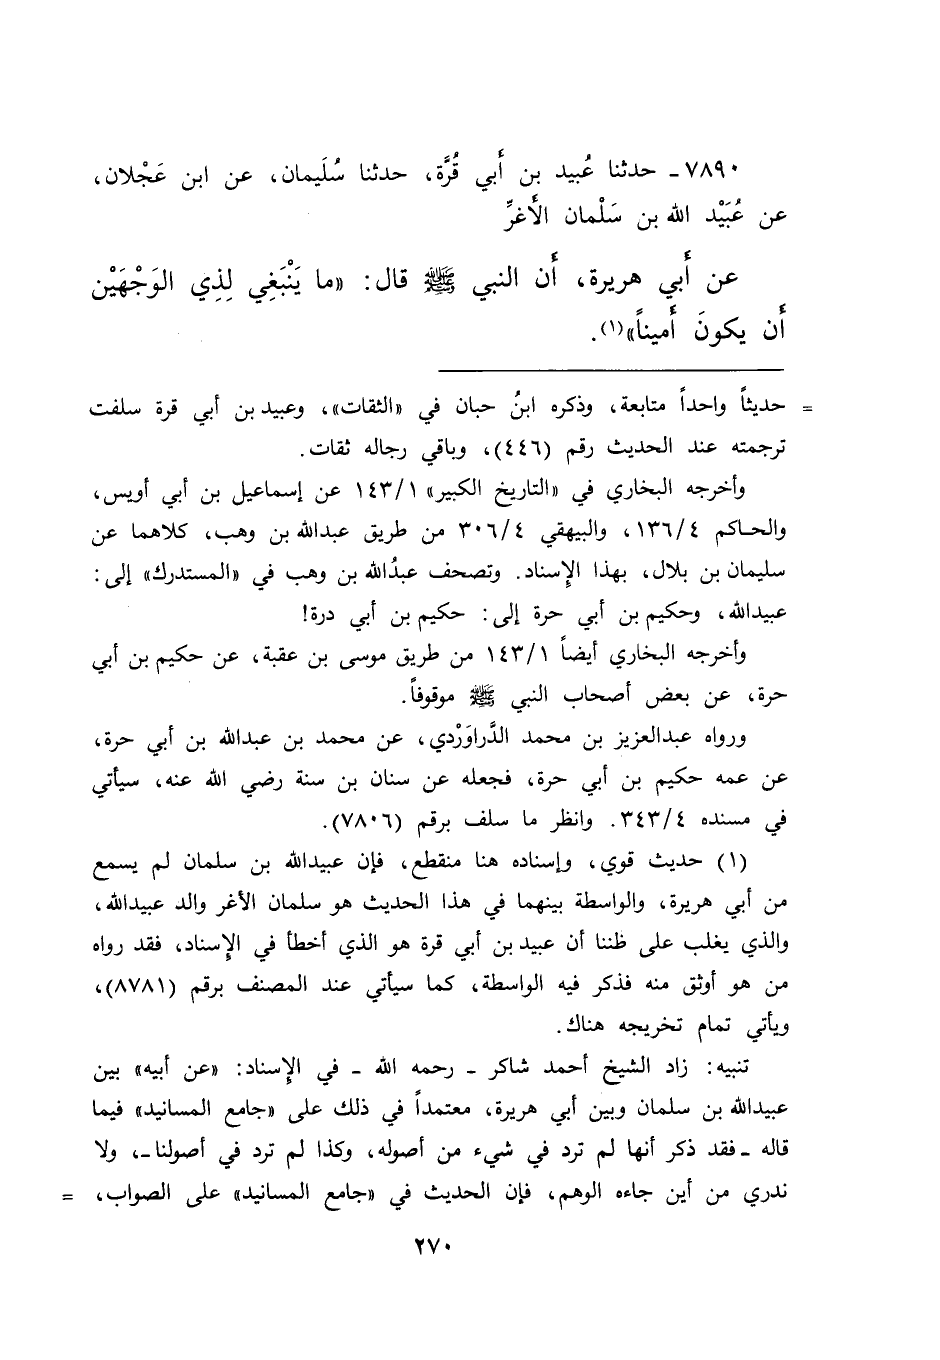 ٧٨٩٠ـ حدثنا عُبيد بن أَبي قُرَّة، حدثنا سُلَيمان، عن ابن عَجْلان،
عن عُبَيْد الله بن سَلْمان الأَغرِّ
عن أَبي هريرة، أَن النبي ﷺ قال: «ما يَنْبَغِي لِذِي الوَجْهَيْن
أَن يكونَ أَميناً»(١).
= حديثاً واحداً متابعة، وذكره ابنُ حبان في «الثقات»، وعبيد بن أبي قرة سلفت
ترجمته عند الحديث رقم (٤٤٦)، وباقي رجاله ثقات.
وأخرجه البخاري في «التاريخ الكبير» ١٤٣/١ عن إسماعيل بن أبي أويس،
والحاكم ١٣٦/٤، والبيهقي ٣٠٦/٤ من طريق عبدالله بن وهب، كلاهما عن
سليمان بن بلال، بهذا الإسناد. وتصحف عبدُالله بن وهب في «المستدرك» إلى:
عبيدالله، وحكيم بن أبي حرة إلى: حكيم بن أبي درة!
وأخرجه البخاري أيضاً ١٤٣/١ من طريق موسى بن عقبة، عن حكيم بن أبي
حرة، عن بعض أصحاب النبي ﷺ موقوفاً.
ورواه عبدالعزيز بن محمد الدَّراوَرْدي، عن محمد بن عبدالله بن أبي حرة،
عن عمه حكيم بن أبي حرة، فجعله عن سنان بن سنة رضي الله عنه، سيأتي
في مسنده ٣٤٣/٤. وانظر ما سلف برقم (٧٨٠٦).
(١) حديث قوي، وإسناده هنا منقطع، فإن عبيدالله بن سلمان لم يسمع
من أبي هريرة، والواسطة بينهما في هذا الحديث هو سلمان الأغر والد عبيدالله،
والذي يغلب على ظننا أن عبيد بن أبي قرة هو الذي أخطأ في الإسناد، فقد رواه
من هو أوثق منه فذكر فيه الواسطة، كما سيأتي عند المصنف برقم (٨٧٨١)،
ويأتي تمام تخريجه هناك.
تنبيه: زاد الشيخ أحمد شاكر ـ رحمه الله ـ في الإسناد: «عن أبيه» بين
عبيدالله بن سلمان وبين أبي هريرة، معتمداً في ذلك على «جامع المسانيد» فيما
قاله ـ فقد ذكر أنها لم ترد في شيء من أصوله، وكذا لم ترد في أصولنا ـ، ولا
ندري من أين جاءه الوهم، فإن الحديث في «جامع المسانيد» على الصواب، =
٢٧٠